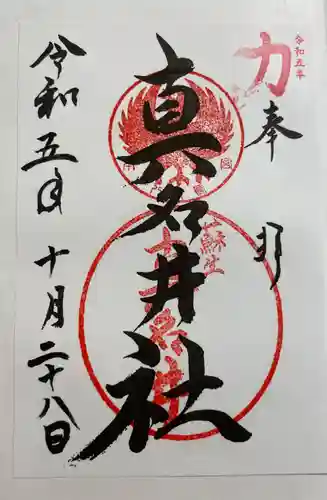 力
令和五年
奉
拝
真名井社
蘇生
令和五年十月二十八日